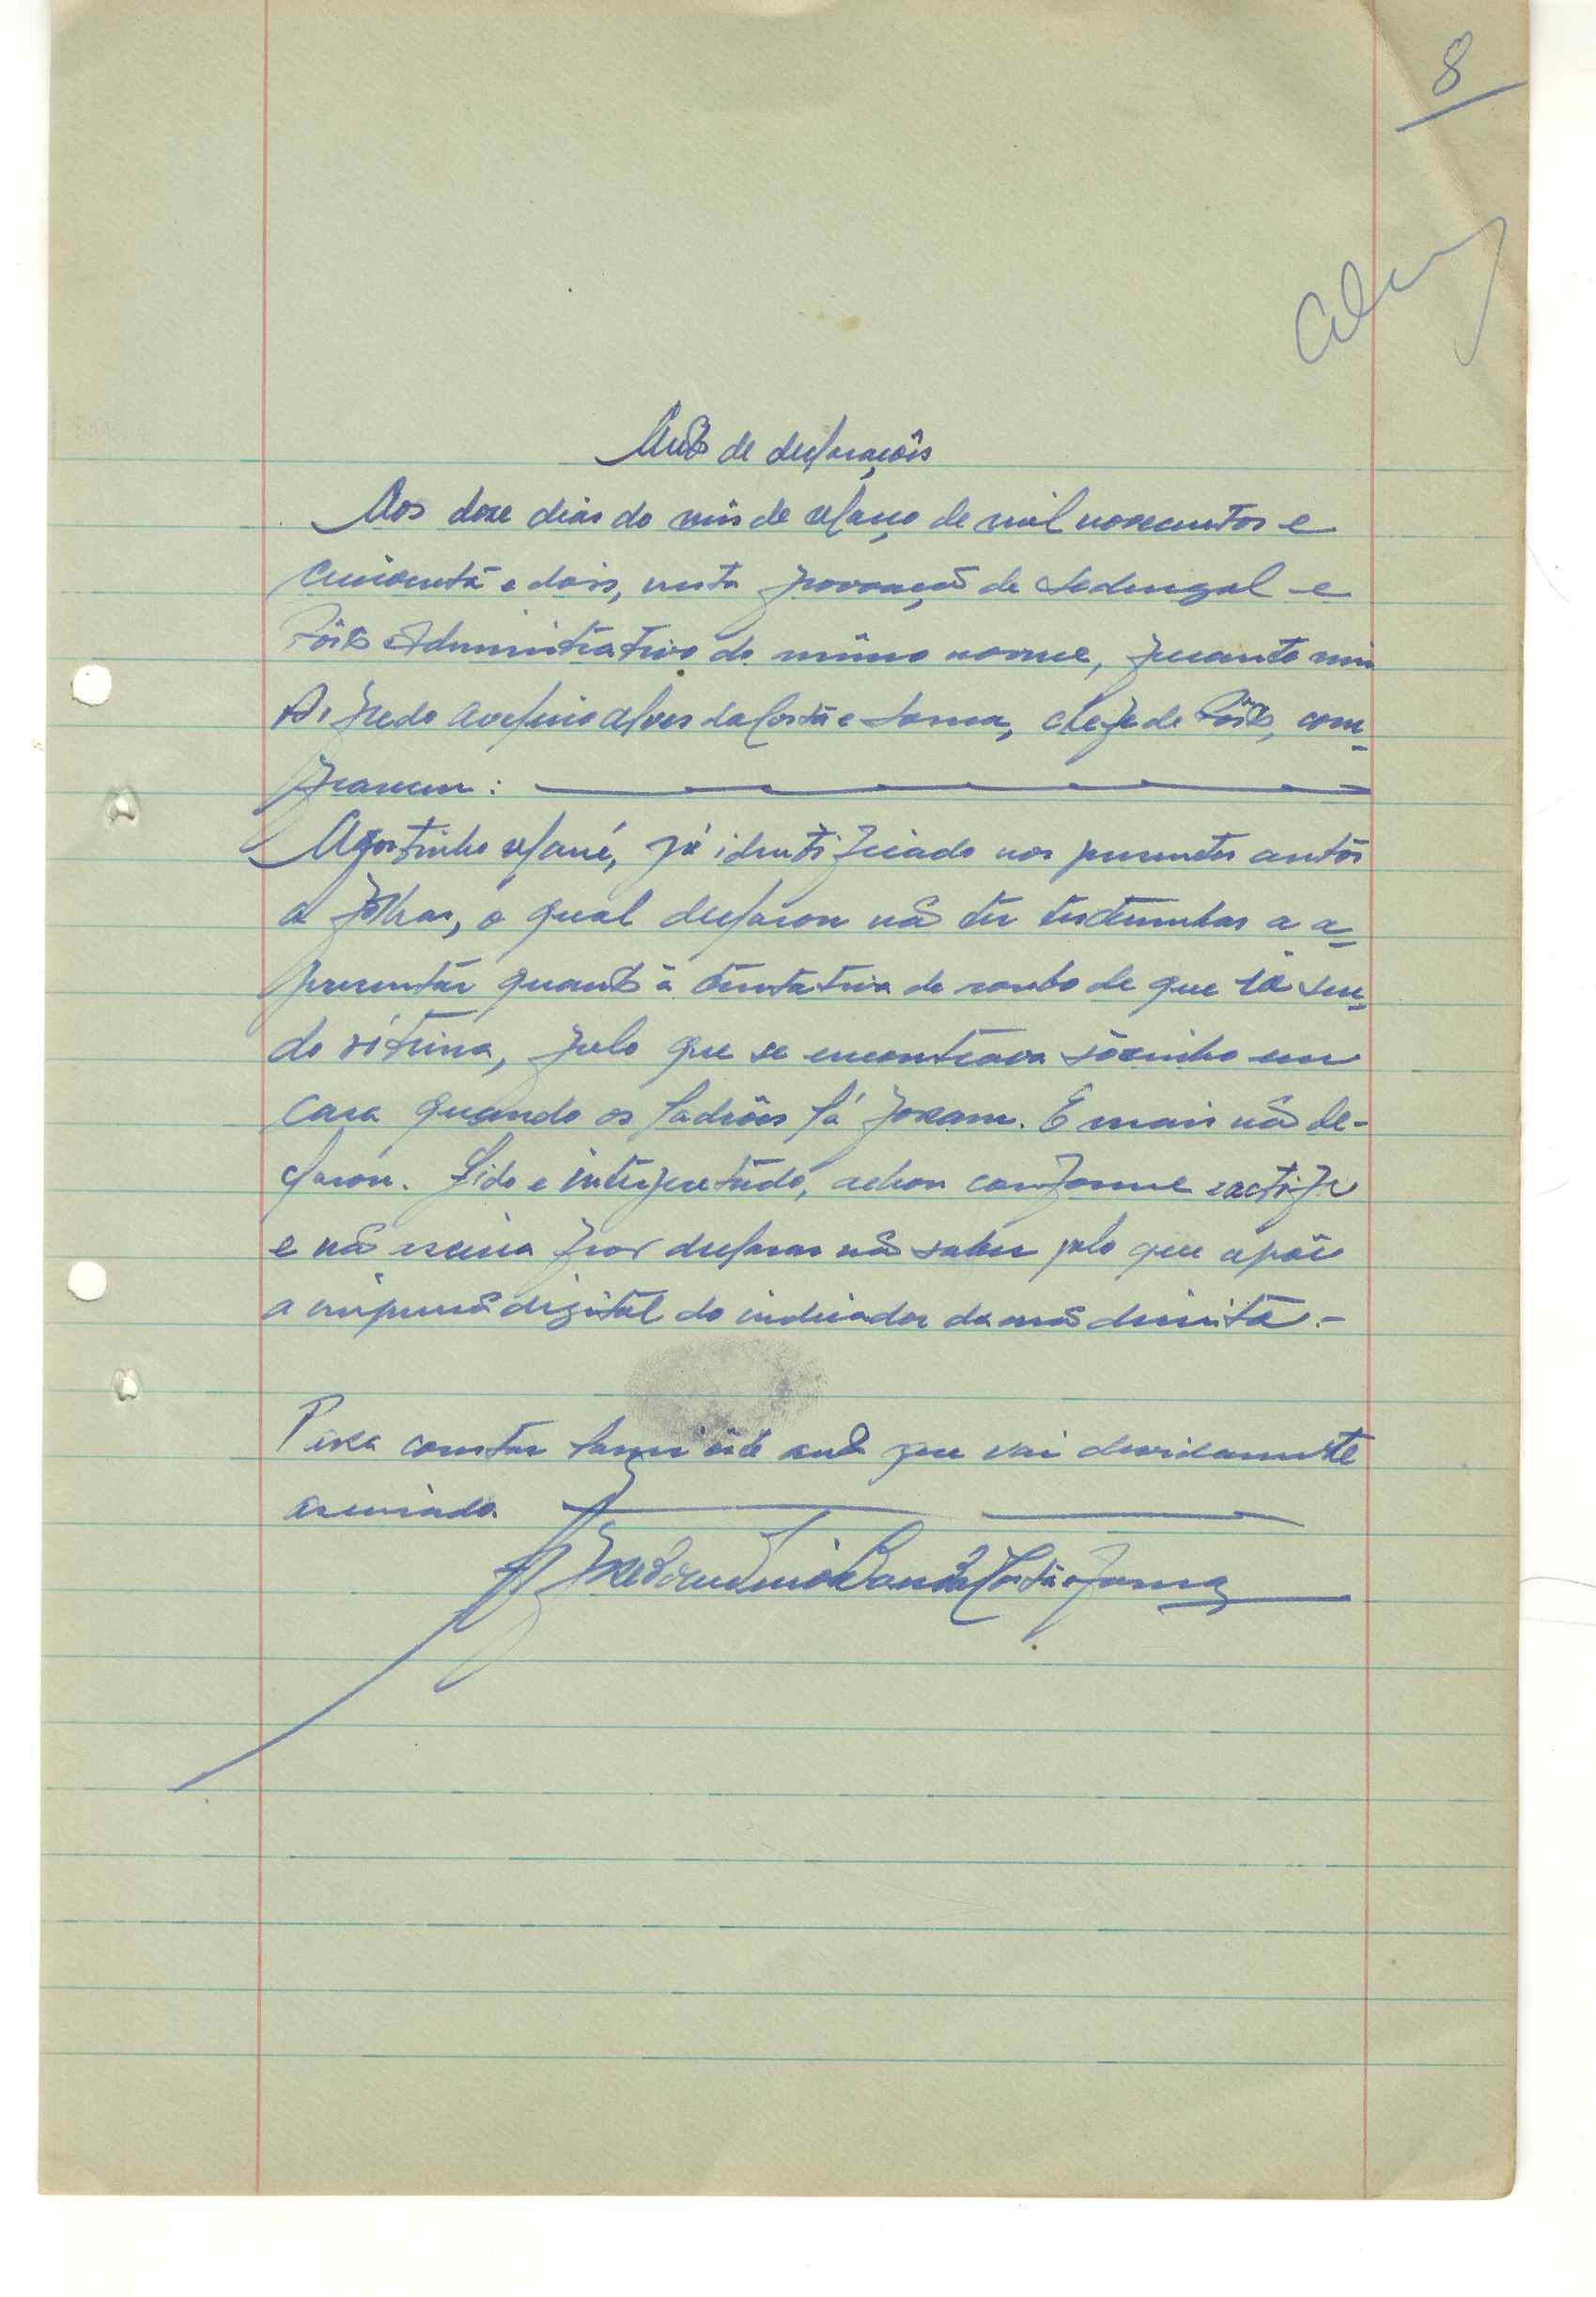 8
Auto de declarações
Aos doze dias do mês de Março de mil novecentos e
cincoenta e dois, nesta povoação de Sedengal e
Pôsto Administrativo do mesmo nome, perante mim
Alfredo Avelino Alves da Costa e Sousa, chefe de Pôsto, com-
pareceu:
Agostinho Mané, já identificado nos presentes autos
a folhas, o qual declarou não ter testemunhas a a-
presentar quanto à tentativa de roubo de que ia sen-
do vítima, pelo que se encontrava sòzinho em
casa quando os ladrões lá foram. E mais não de-
clarou. Lido e interpretado, achou conforme ractifica
e não assina por declarar não saber pelo que apõe
a impressão digital do indicador da mão direita.-
Para constar lavrei êste auto que vai devidamente
assinado.